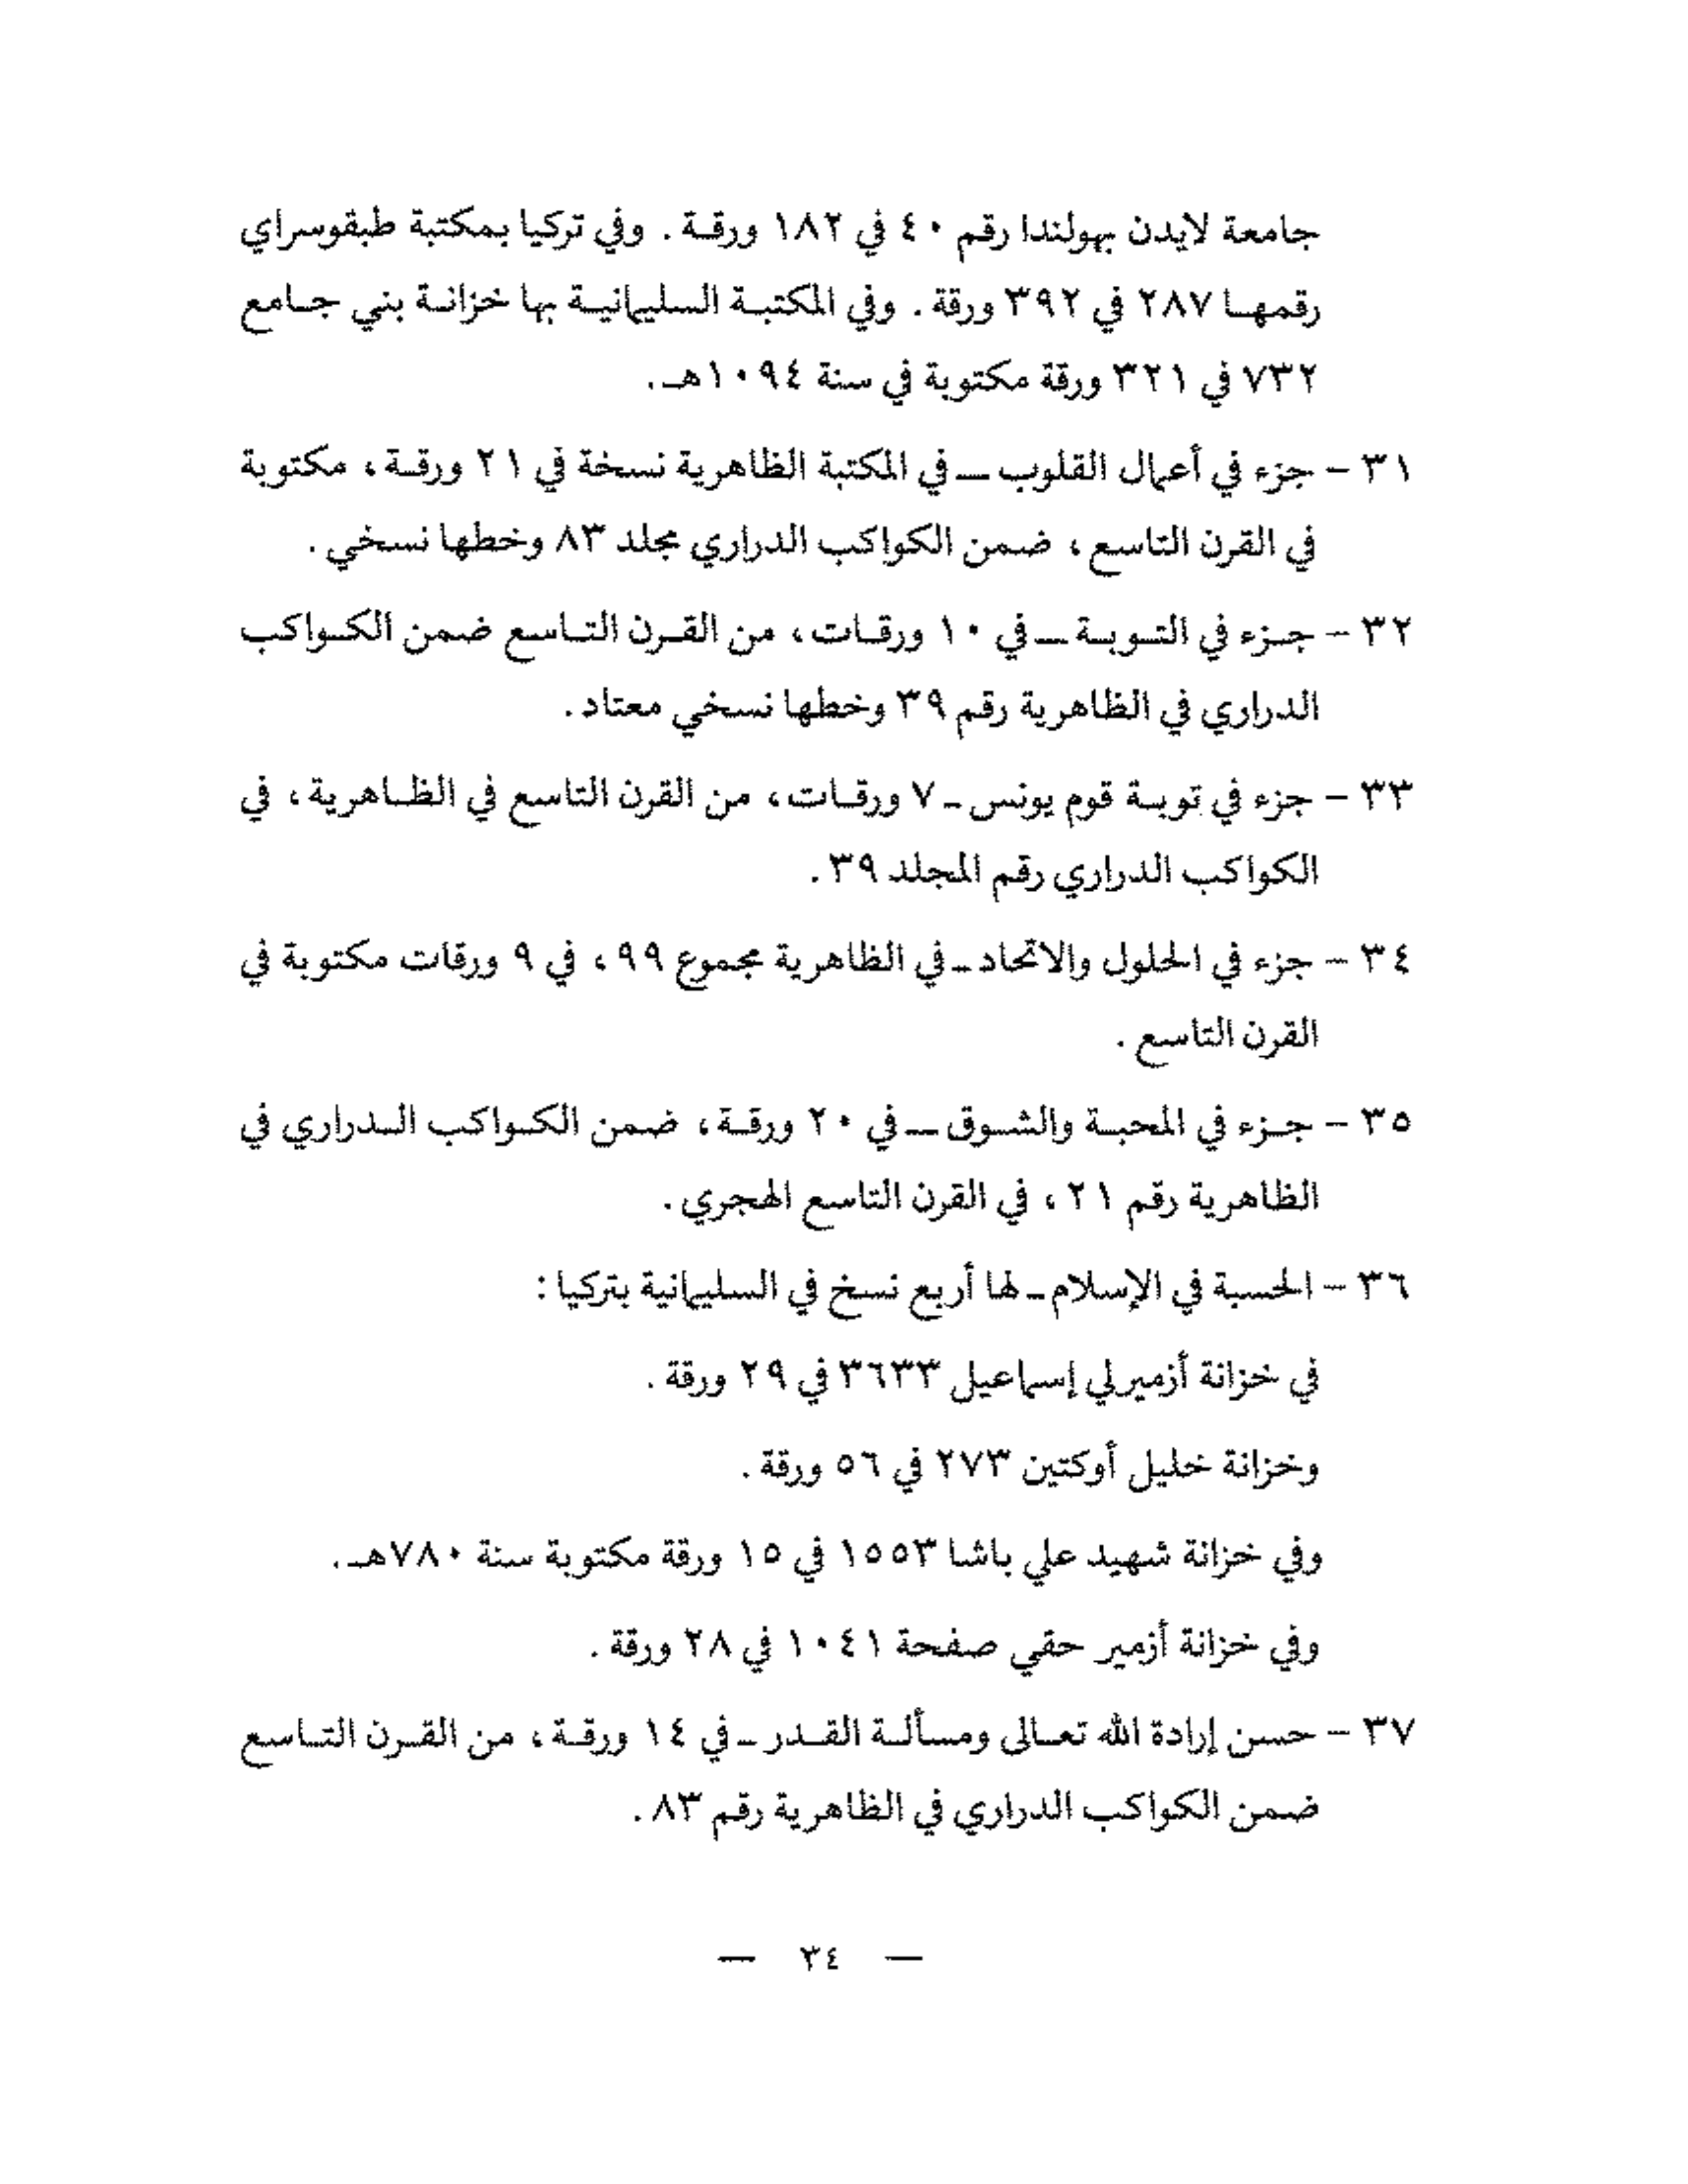 جامعة لايدن بهولندا رقم ٤٠ في ١٨٢ ورقة . وفي تركيا بمكتبة طبقوسراي
رقمها ٢٨٧ في ٣٩٢ ورقة . وفي المكتبة السليمانية بها خزانة بني جامع
٧٣٢ في ٣٢١ ورقة مكتوبة في سنة ١٠٩٤هـ .
٣١ - جزء في أعمال القلوب ــ في المكتبة الظاهرية نسخة في ٢١ ورقة ، مكتوبة
في القرن التاسع ، ضمن الكواكب الدراري مجلد ٨٣ وخطها نسخي .
٣٢ - جزء في التوبة ــ في ١٠ ورقات ، من القرن التاسع ضمن الكواكب
الدراري في الظاهرية رقم ٣٩ وخطها نسخي معتاد .
٣٣ - جزء في توبة قوم يونس ـ ٧ ورقات ، من القرن التاسع في الظاهرية ، في
الكواكب الدراري رقم المجلد ٣٩ .
٣٤ - جزء في الحلول والاتحاد ـ في الظاهرية مجموع ٩٩ ، في ٩ ورقات مكتوبة في
القرن التاسع .
٣٥ - جزء في المحبة والشوق ــ في ٢٠ ورقة ، ضمن الكواكب الدراري في
الظاهرية رقم ٢١ ، في القرن التاسع الهجري .
٣٦ - الحسبة في الإسلام ـ لها أربع نسخ في السليمانية بتركيا :
في خزانة أزميرلي إسماعيل ٣٦٣٣ في ٢٩ ورقة .
وخزانة خليل أوكتين ٢٧٣ في ٥٦ ورقة .
وفي خزانة شهيد علي باشا ١٥٥٣ في ١٥ ورقة مكتوبة سنة ٧٨٠هـ .
وفي خزانة أزمير حقي صفحة ١٠٤١ في ٢٨ ورقة .
٣٧ - حسن إرادة الله تعالى ومسألة القدر ـ في ١٤ ورقة ، من القرن التاسع
ضمن الكواكب الدراري في الظاهرية رقم ٨٣ .
— ٣٤ —